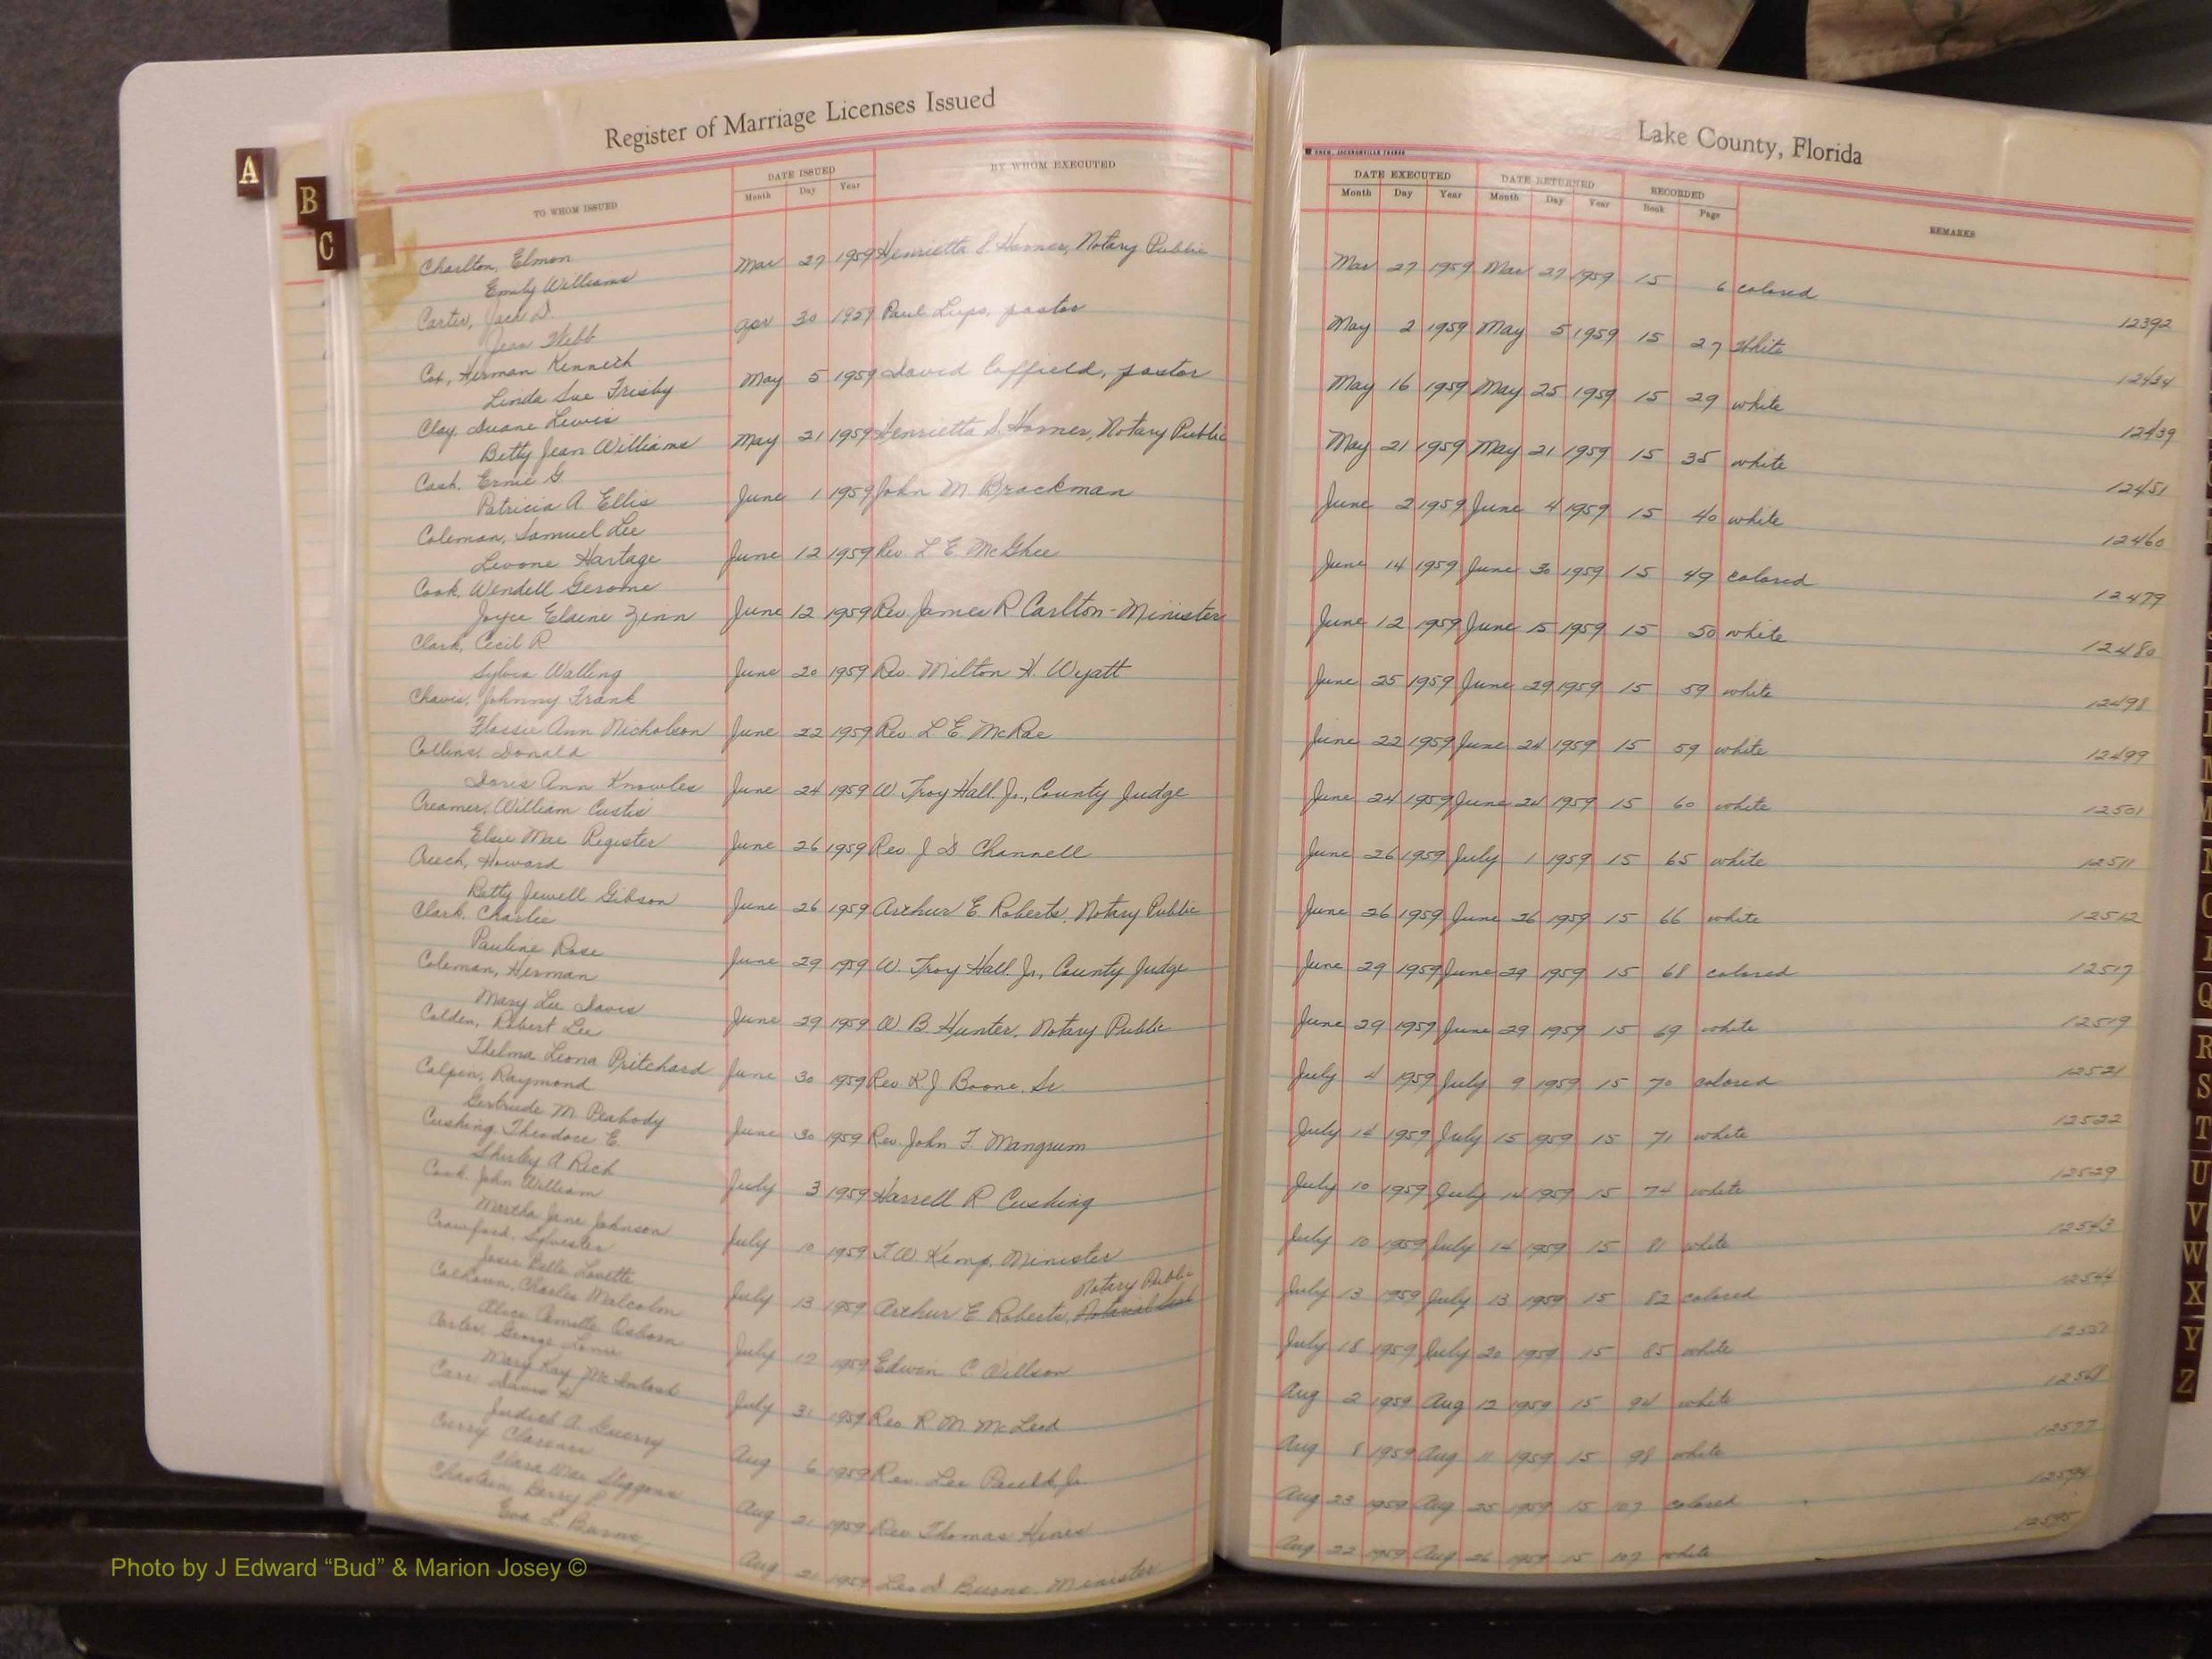 Register of Marriage Licenses Issued
TO WHOM ISSUED
DATE ISSUED
Month Day Year
BY WHOM EXECUTED
A
B
C
Charlton, Elmon
Emily Williams
Mar 27 1959 Henrietta S. Horner, Notary Public
Carter, Jack D.
Jean Webb
Apr 30 1959 Paul Lups, pastor
Cox, Herman Kenneth
Linda Sue Frisby
May 5 1959 David Coffield, pastor
Clay, Duane Lewis
Betty Jean Williams
May 21 1959 Henrietta S. Horner, Notary Public
Cash, Ernie G
Patricia A. Ellis
June 1 1959 John M. Brackman
Coleman, Samuel Lee
Levone Hartage
June 12 1959 Rev L E McGhee
Cook, Wendell Gerome
Joyce Elaine Zinn
June 12 1959 Rev. James R Carlton - Minister
Clark, Cecil R
Sylvia Walling
June 20 1959 Rev. Milton H. Wyatt
Chavis, Johnny Frank
Flossie Ann Nicholson
June 22 1959 Rev. L E. McRae
Collins, Donald
Doris Ann Knowles
June 24 1959 W. Troy Hall, Jr., County Judge
Creamer, William Custis
Elsie Mae Register
June 26 1959 Rev J D Channell
Creech, Howard
Betty Jewell Gibson
June 26 1959 Arthur E. Roberts, Notary Public
Clark, Charlie
Pauline Rose
June 29 1959 W. Troy Hall, Jr., County Judge
Coleman, Herman
Mary Lee Davis
June 29 1959 W B Hunter, Notary Public
Colden, Robert Lee
Thelma Leona Pritchard
June 30 1959 Rev K J Boone, Sr.
Colpen, Raymond
Gertrude M. Peabody
June 30 1959 Rev. John F. Mangrum
Cushing, Theodore E.
Shirley A Rich
July 3 1959 Harrell R Cushing
Cook, John William
Martha Jane Johnson
July 10 1959 T. W. Kemp, Minister
Crawford, Sylvester
Josie Belle Lovette
Notary Public
July 13 1959 Arthur E Roberts,
Calhoun, Charles Malcolm
Alice Camille Osborn
July 17 1959 Edwin C. Willson
Carter, George
Mary Kay McIntosh
July 31 1959 Rev R. M. McLeod
Carr, David
Judith A. Guerry
Aug 6 1959 Rev. Lee Paulk Jr
Curry Clarence
Clara Mae
Aug 21 1959 Rev Thomas Hines
Chastain,
Eva L. Burns
Aug 21 1959 Leo D Burns, Minister
Lake County, Florida
DATE EXECUTED
Month Day Year
DATE RETURNED
Month Day Year
RECORDED
Book Page
REMARKS
Mar 27 1959 Mar 27 1959 15 6 colored
12392
May 2 1959 May 5 1959 15 27 white
12434
May 16 1959 May 25 1959 15 29 white
12439
May 21 1959 May 21 1959 15 35 white
12451
June 2 1959 June 4 1959 15 40 white
12460
June 14 1959 June 30 1959 15 49 colored
12479
June 12 1959 June 15 1959 15 50 white
12480
June 25 1959 June 29 1959 15 59 white
12498
June 22 1959 June 24 1959 15 59 white
12499
June 24 1959 June 24 1959 15 60 white
12501
June 26 1959 July 1 1959 15 65 white
12511
June 26 1959 June 26 1959 15 66 white
12512
June 29 1959 June 29 1959 15 68 colored
12517
June 29 1959 June 29 1959 15 69 white
12519
July 4 1959 July 9 1959 15 70 colored
12521
July 14 1959 July 15 1959 15 71 white
12522
July 10 1959 July 14 1959 15 74 white
12529
July 10 1959 July 14 1959 15 81 white
12543
July 13 1959 July 13 1959 15 82 colored
12544
July 18 1959 July 20 1959 15 85 white
Aug 2 1959 Aug 12 1959 15 94 white
Aug 8 1959 Aug 11 1959 15 98 white
12577
Aug 23 1959 Aug 25 1959 15 107 colored
12594
Aug 22 1959 Aug 26 1959 15 107 white
12595
Q
R
S
T
U
V
W
X
Y
Z
Photo by J Edward “Bud” & Marion Josey ©